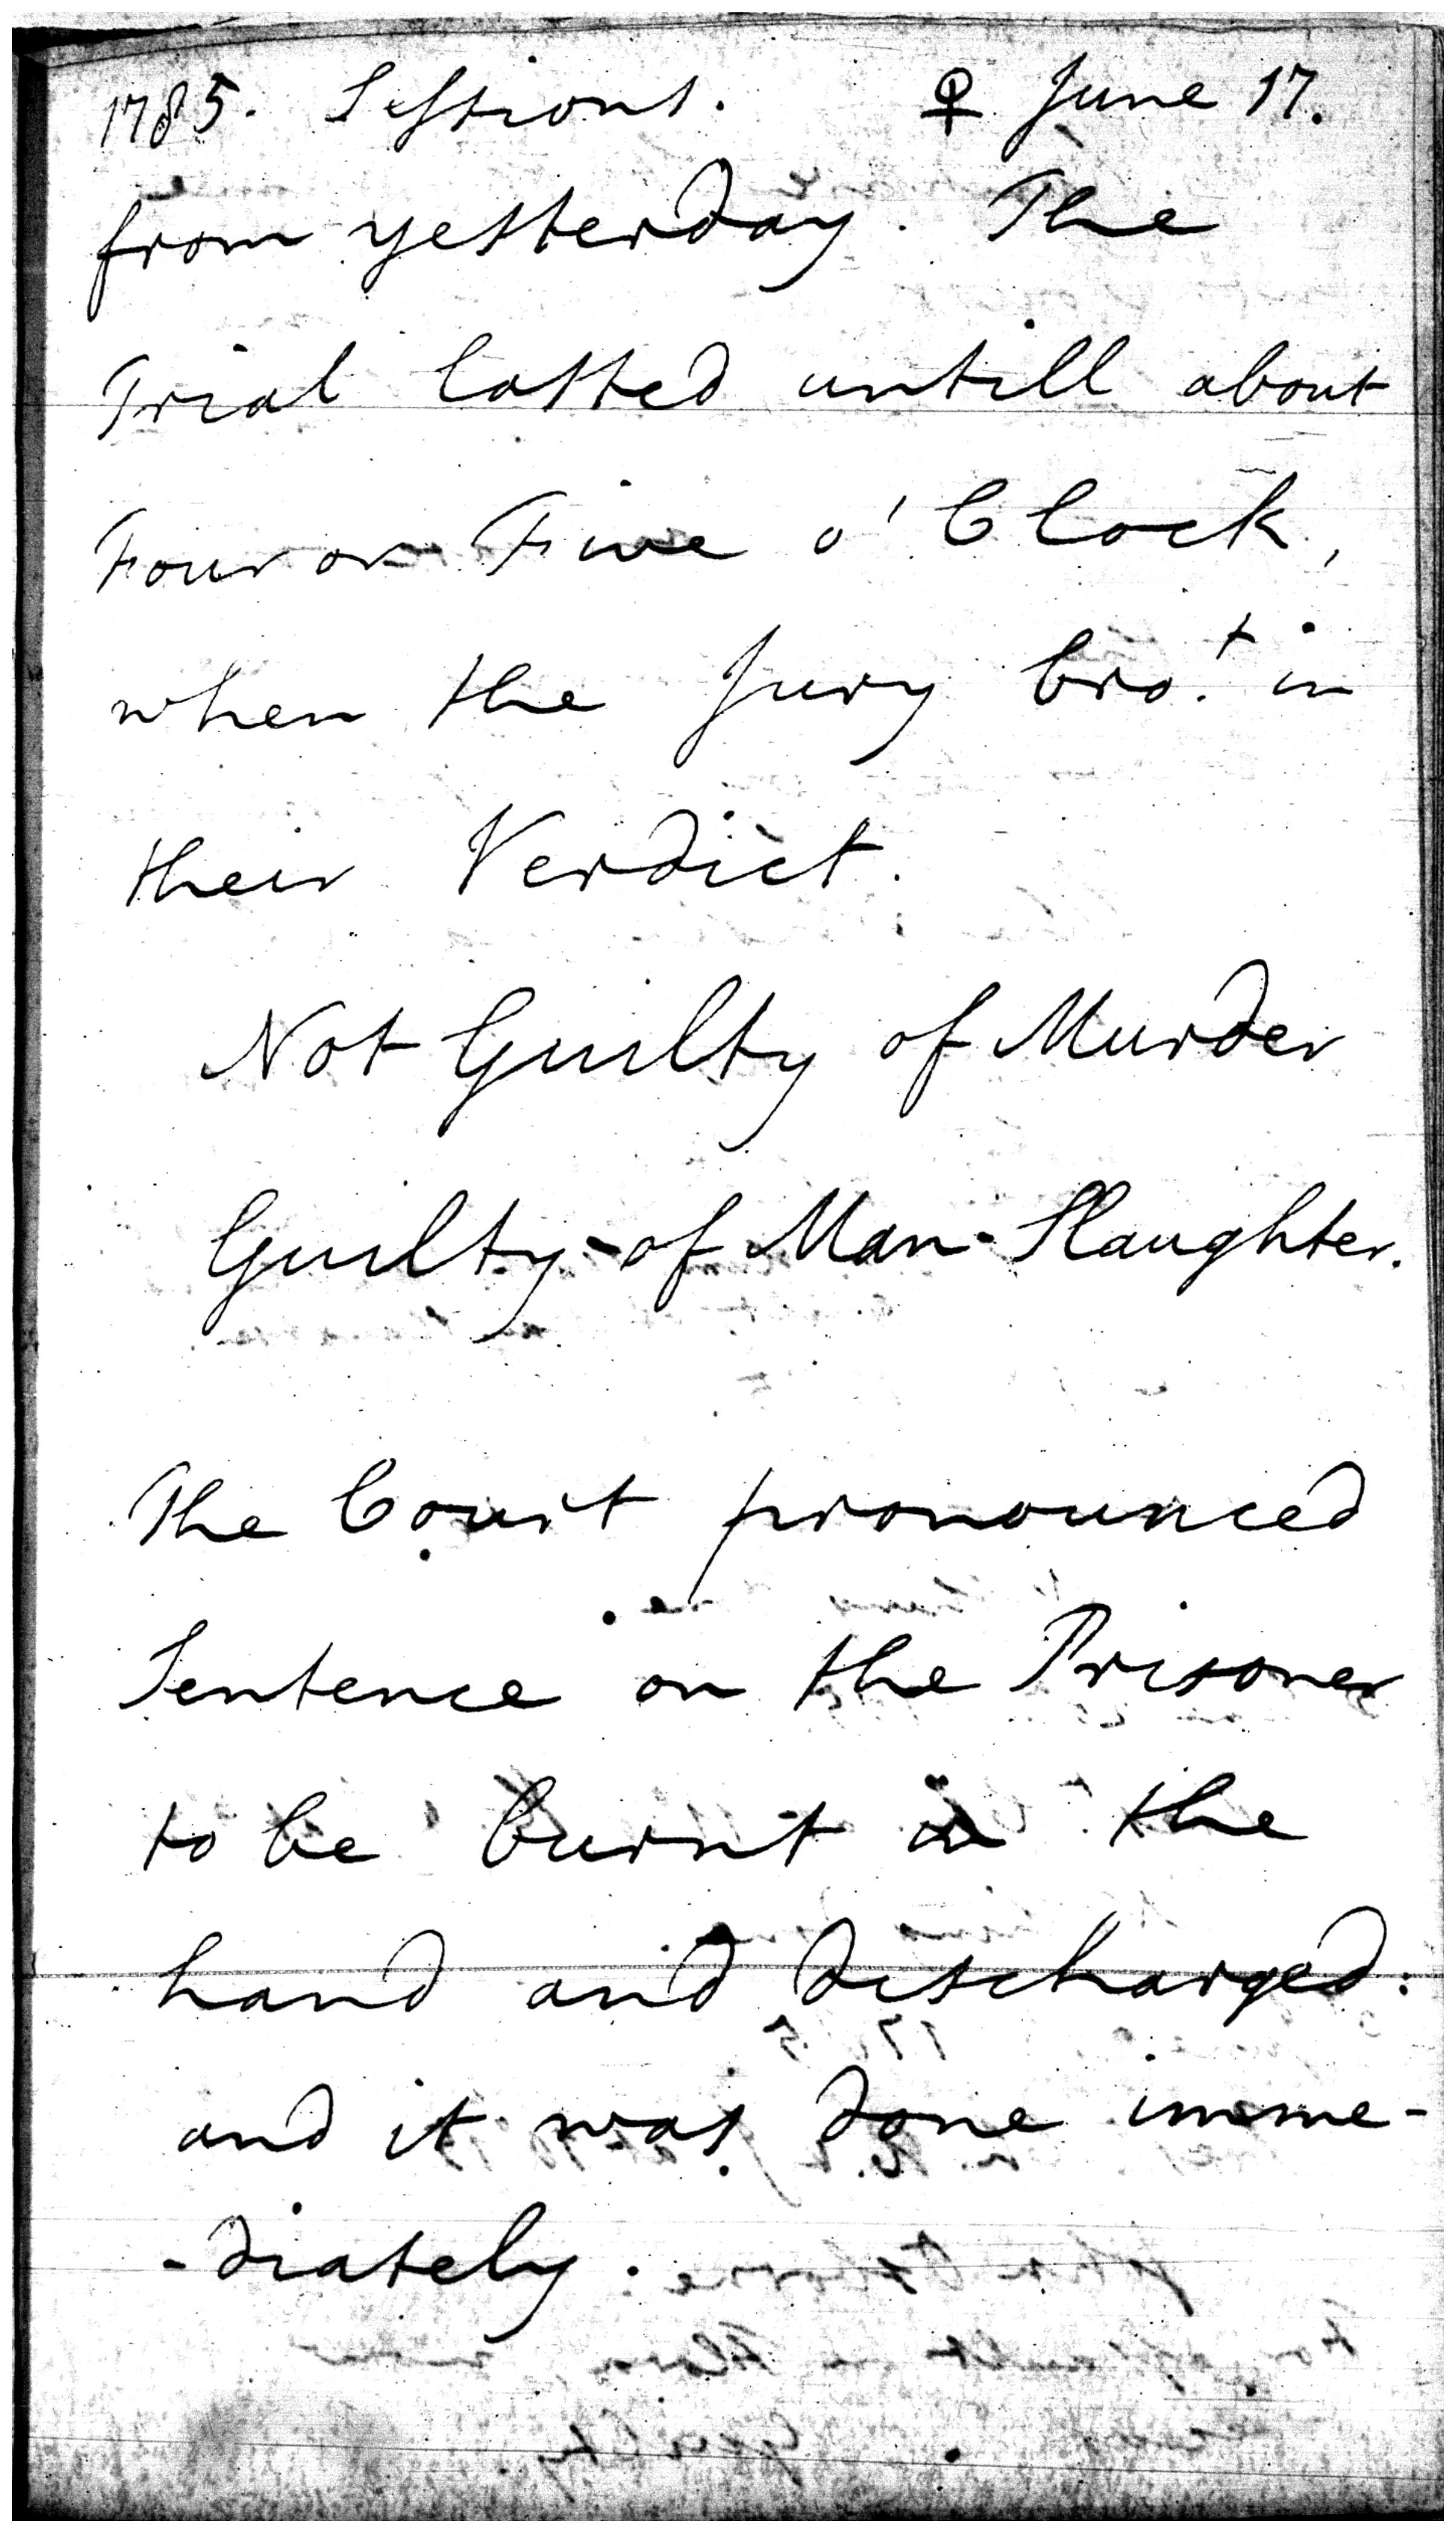 1785. Sessions. ♀ June 17.
from yesterday. The
Trial lasted untill about
Four or Five o'Clock,
when the Jury bro.t in
their Verdict.
Not Guilty of Murder
Guilty of Man-Slaughter.
The Court pronounced
Sentence on the Prisoner
to be burnt in the
hand and discharged:
and it was done imme-
-diately.